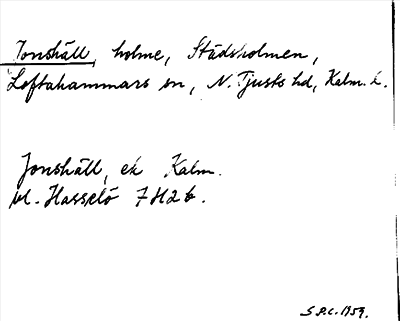 Jonshäll, holme, Städsholmen,
Loftahammars sn, N. Tjusts hd, Kalm. l.
Jonshäll, ek Kalm.
bl. Hasselö 7H2b.
S.P.C. 1959.